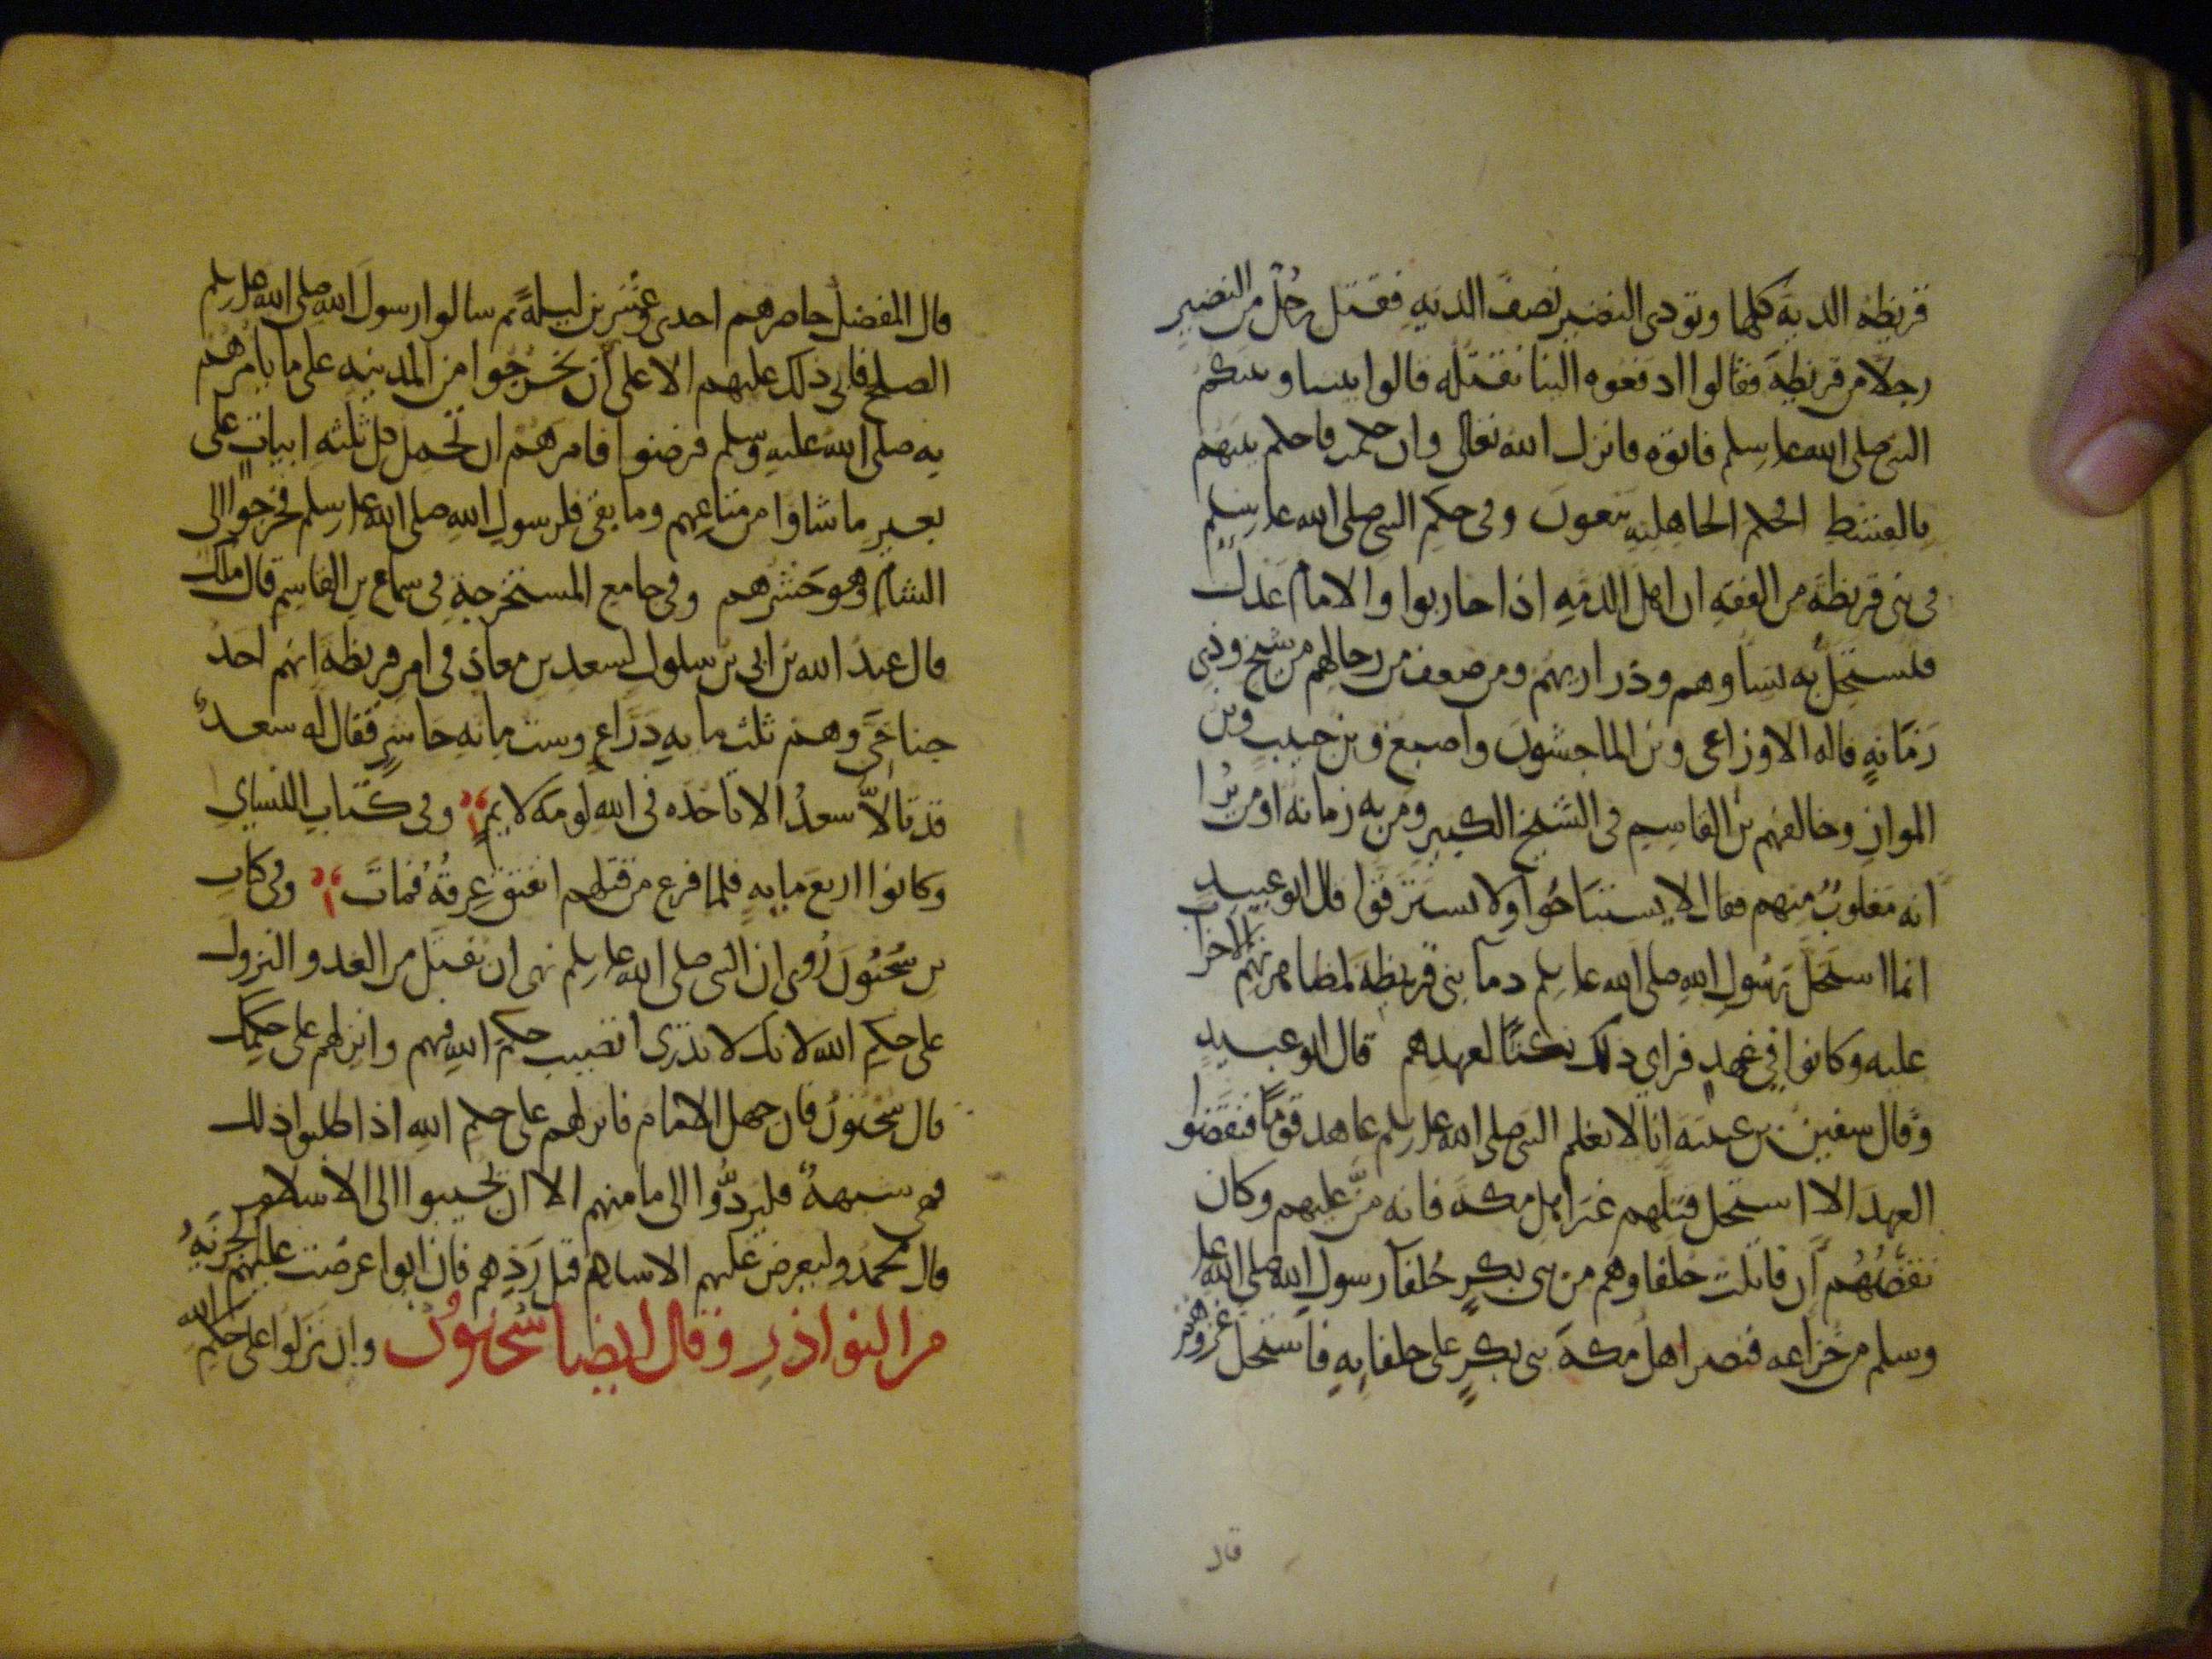 قريظة الدية كلها وتودى النضير نصف الدية فقتل رجل من النضير
رجلا من قريظة فقالوا ادفعوه الينا نقتله قالوا بيننا وبينكم
النبي صلى الله عليه وسلم فاتوه فانزل الله تعالى وان حكمت فاحكم بينهم
بالقسط افحكم الجاهلية يبغون وفي حكم النبي صلى الله عليه وسلم
في بني قريظة من الفقه ان اهل الذمة اذا حاربوا والامام عدل
فليستحل به نساوهم وذراريهم ومن ضعف من رجالهم من شيخ وذي
زمانة قاله الاوزاعي وبن الماجشون واصبغ وبن حبيب وبن
المواز وخالفهم بن القاسم في الشيخ الكبير ومن به زمانة او من يرا
انه مغلوب منهم فقال لا يستباحوا ولا يسترقوا قال ابو عبيد
انما استحل رسول الله صلى الله عليه وسلم دماء بني قريظة لمظاهرتهم الاحزاب
عليه وكانوا في عهد فراى ذلك نكثا لعهدهم قال ابو عبيد
وقال سفين بن عيينة انا لا نعلم النبي صلى الله عليه وسلم عاهد قوما فنقضوا
العهد الا استحل قتلهم غير اهل مكة فانه من عليهم وكان
نقضهم ان قاتلت حلفاوهم من بني بكر حلفاء رسول الله صلى الله عليه
وسلم من خزاعه فنصر اهل مكة بني بكر على حلفايه فاستحل غزوهم
قال
قال المفضل حاصرهم احدى وعشرين ليلة ثم سالوا رسول الله صلى الله عليه وسلم
الصلح فابى ذلك عليهم الا على ان يخرجوا من المدينة على ما يامرهم
به صلى الله عليه وسلم فرضوا فامرهم ان تحمل كل ثلثة ابيات على
بعير ما شاوا من متاعهم وما بقي فلرسول الله صلى الله عليه وسلم فخرجوا الى
الشام وهو حشرهم وفي جامع المستخرجة في سماع بن القاسم قال ملك
قال عبد الله بن ابي بن سلول لسعد بن معاذ في امر قريظة انهم احد
جناحي وهم ثلث ماية دراع وست ماية حاسر فقال له سعد
قد نا لا سعد الا تاخذه في الله لومة لايم وفي كتاب النساي
وكانوا اربع ماية فلما فرغ من قتلهم انفتق عرقه فمات وفي كتاب
بن سحنون روي ان النبي صلى الله عليه وسلم نهى ان يقبل من العدو النزول
على حكم الله لانك لا تدري اتصيب حكم الله فيهم وانزلهم على حكمك
قال سحنون فان جهل الامام فانزلهم على حكم الله اذا طلبوا ذلك
فهي شبهة فليردوا الى مامنهم الا ان يجيبوا الى الاسلام
قال محمد وليعرض عليهم الاسلام قبل ردهم فان ابوا عرضت عليهم الجزية
من النوادر وقال ايضا سحنون وان نزلوا على حكم الله